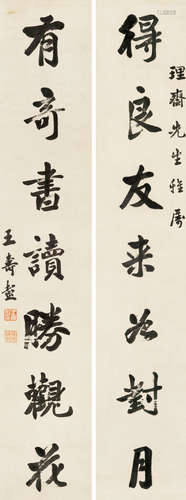 理齋先生雅屬
得良友来如對月
有奇書讀勝觀花
王壽彭